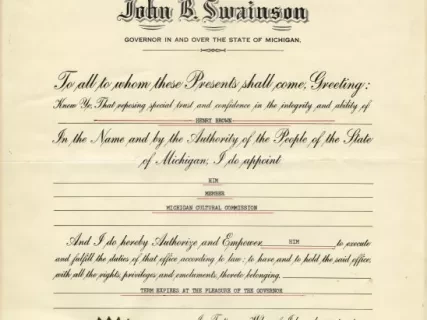 John B. Swainson
GOVERNOR IN AND OVER THE STATE OF MICHIGAN.
To all to whom these Presents shall come, Greeting:
Know Ye, That reposing special trust and confidence in the integrity and ability of
HENRY BROWN
In the Name and by the Authority of the People of the State
of Michigan, I do appoint
HIM
MEMBER
MICHIGAN CULTURAL COMMISSION
And I do hereby Authorize and Empower HIM to execute
and fulfill the duties of that office according to law; to have and to hold the said office,
with all the rights, privileges and emoluments, thereto belonging.
TERM EXPIRES AT THE PLEASURE OF THE GOVERNOR